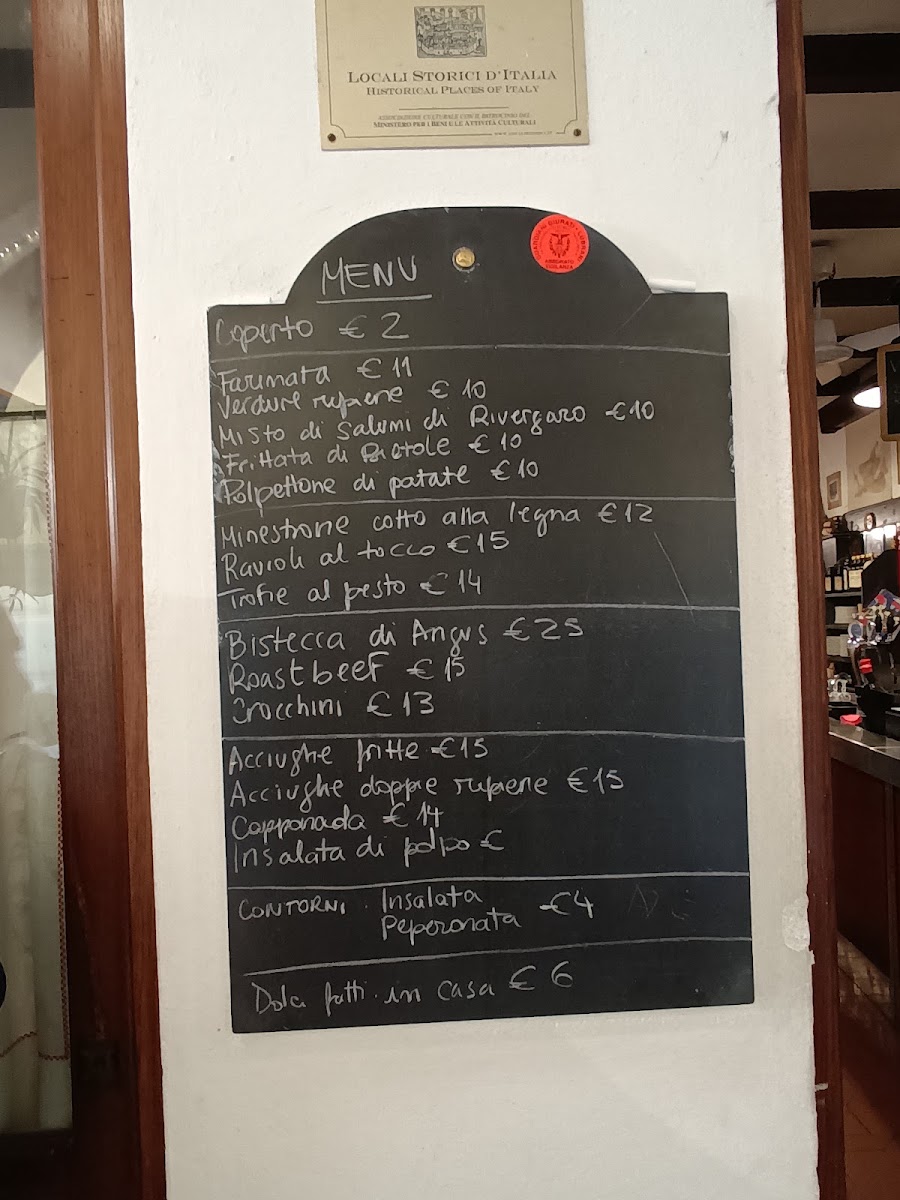 LOCALI STORICI D'ITALIA
HISTORICAL PLACES OF ITALY
ASSOCIAZIONE CULTURALE CON IL PATROCINIO DEL
MINISTERO PER I BENI E LE ATTIVITÀ CULTURALI
MENU
Coperto € 2
Farinata € 11
Verdure ripiene € 10
Misto di Salumi di Rivergaro €10
Frittata di Bietole € 10
Polpettone di patate €10
Minestrone cotto alla legna €12
Ravioli al tocco €15
Trofie al pesto €14
Bistecca di Angus €25
Roastbeef €15
Crocchini €13
Acciughe fritte €15
Acciughe doppie ripiene €15
Capponada €14
Insalata di polpo €
CONTORNI Insalata €4
Peperonata
Dolci fatti in casa € 6